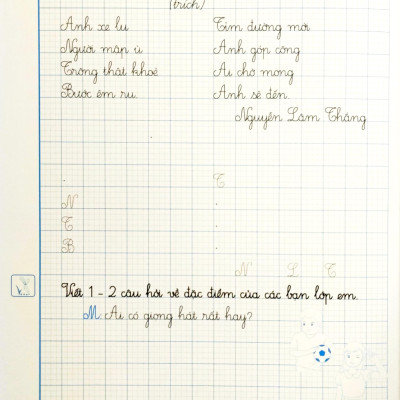 (trích)
Anh xe lu
Người mập ù
Trông thật khoẻ
Bước êm ru.
Tìm đường mới
Anh góp công
Ai chờ mong
Anh sẽ đến.
Nguyễn Lãm Thắng
T
N
T
B
N L T
Viết 1 - 2 câu hỏi về đặc điểm của các bạn lớp em.
M: Ai có giọng hát rất hay?